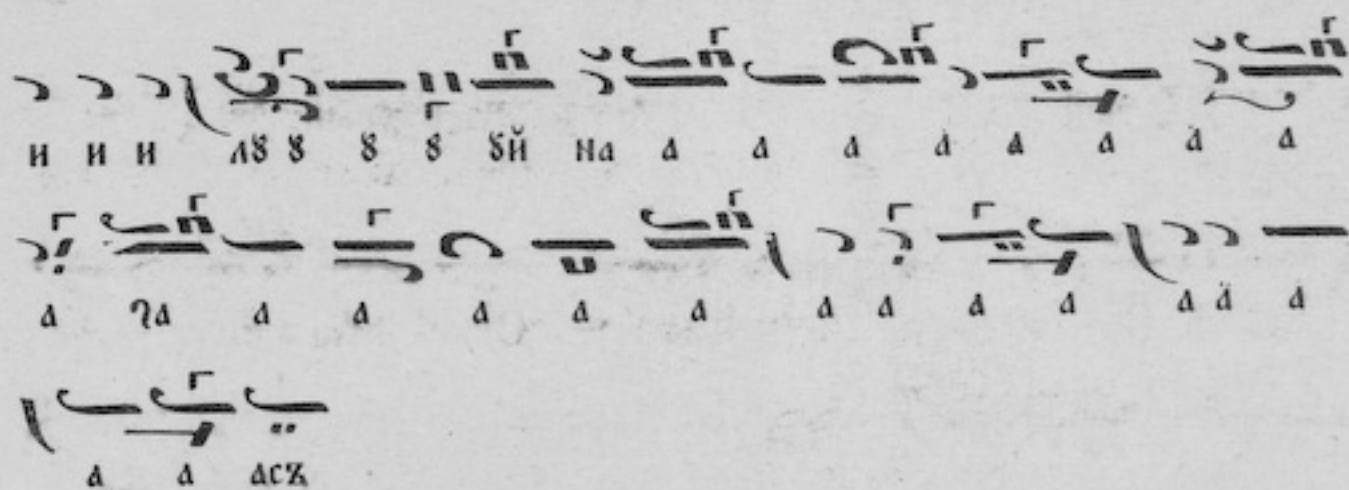 и и и лꙋ ꙋ ꙋ ꙋ ꙋй на а а а а а а а а
а га а а а а а а а а а а а а
а а асъ